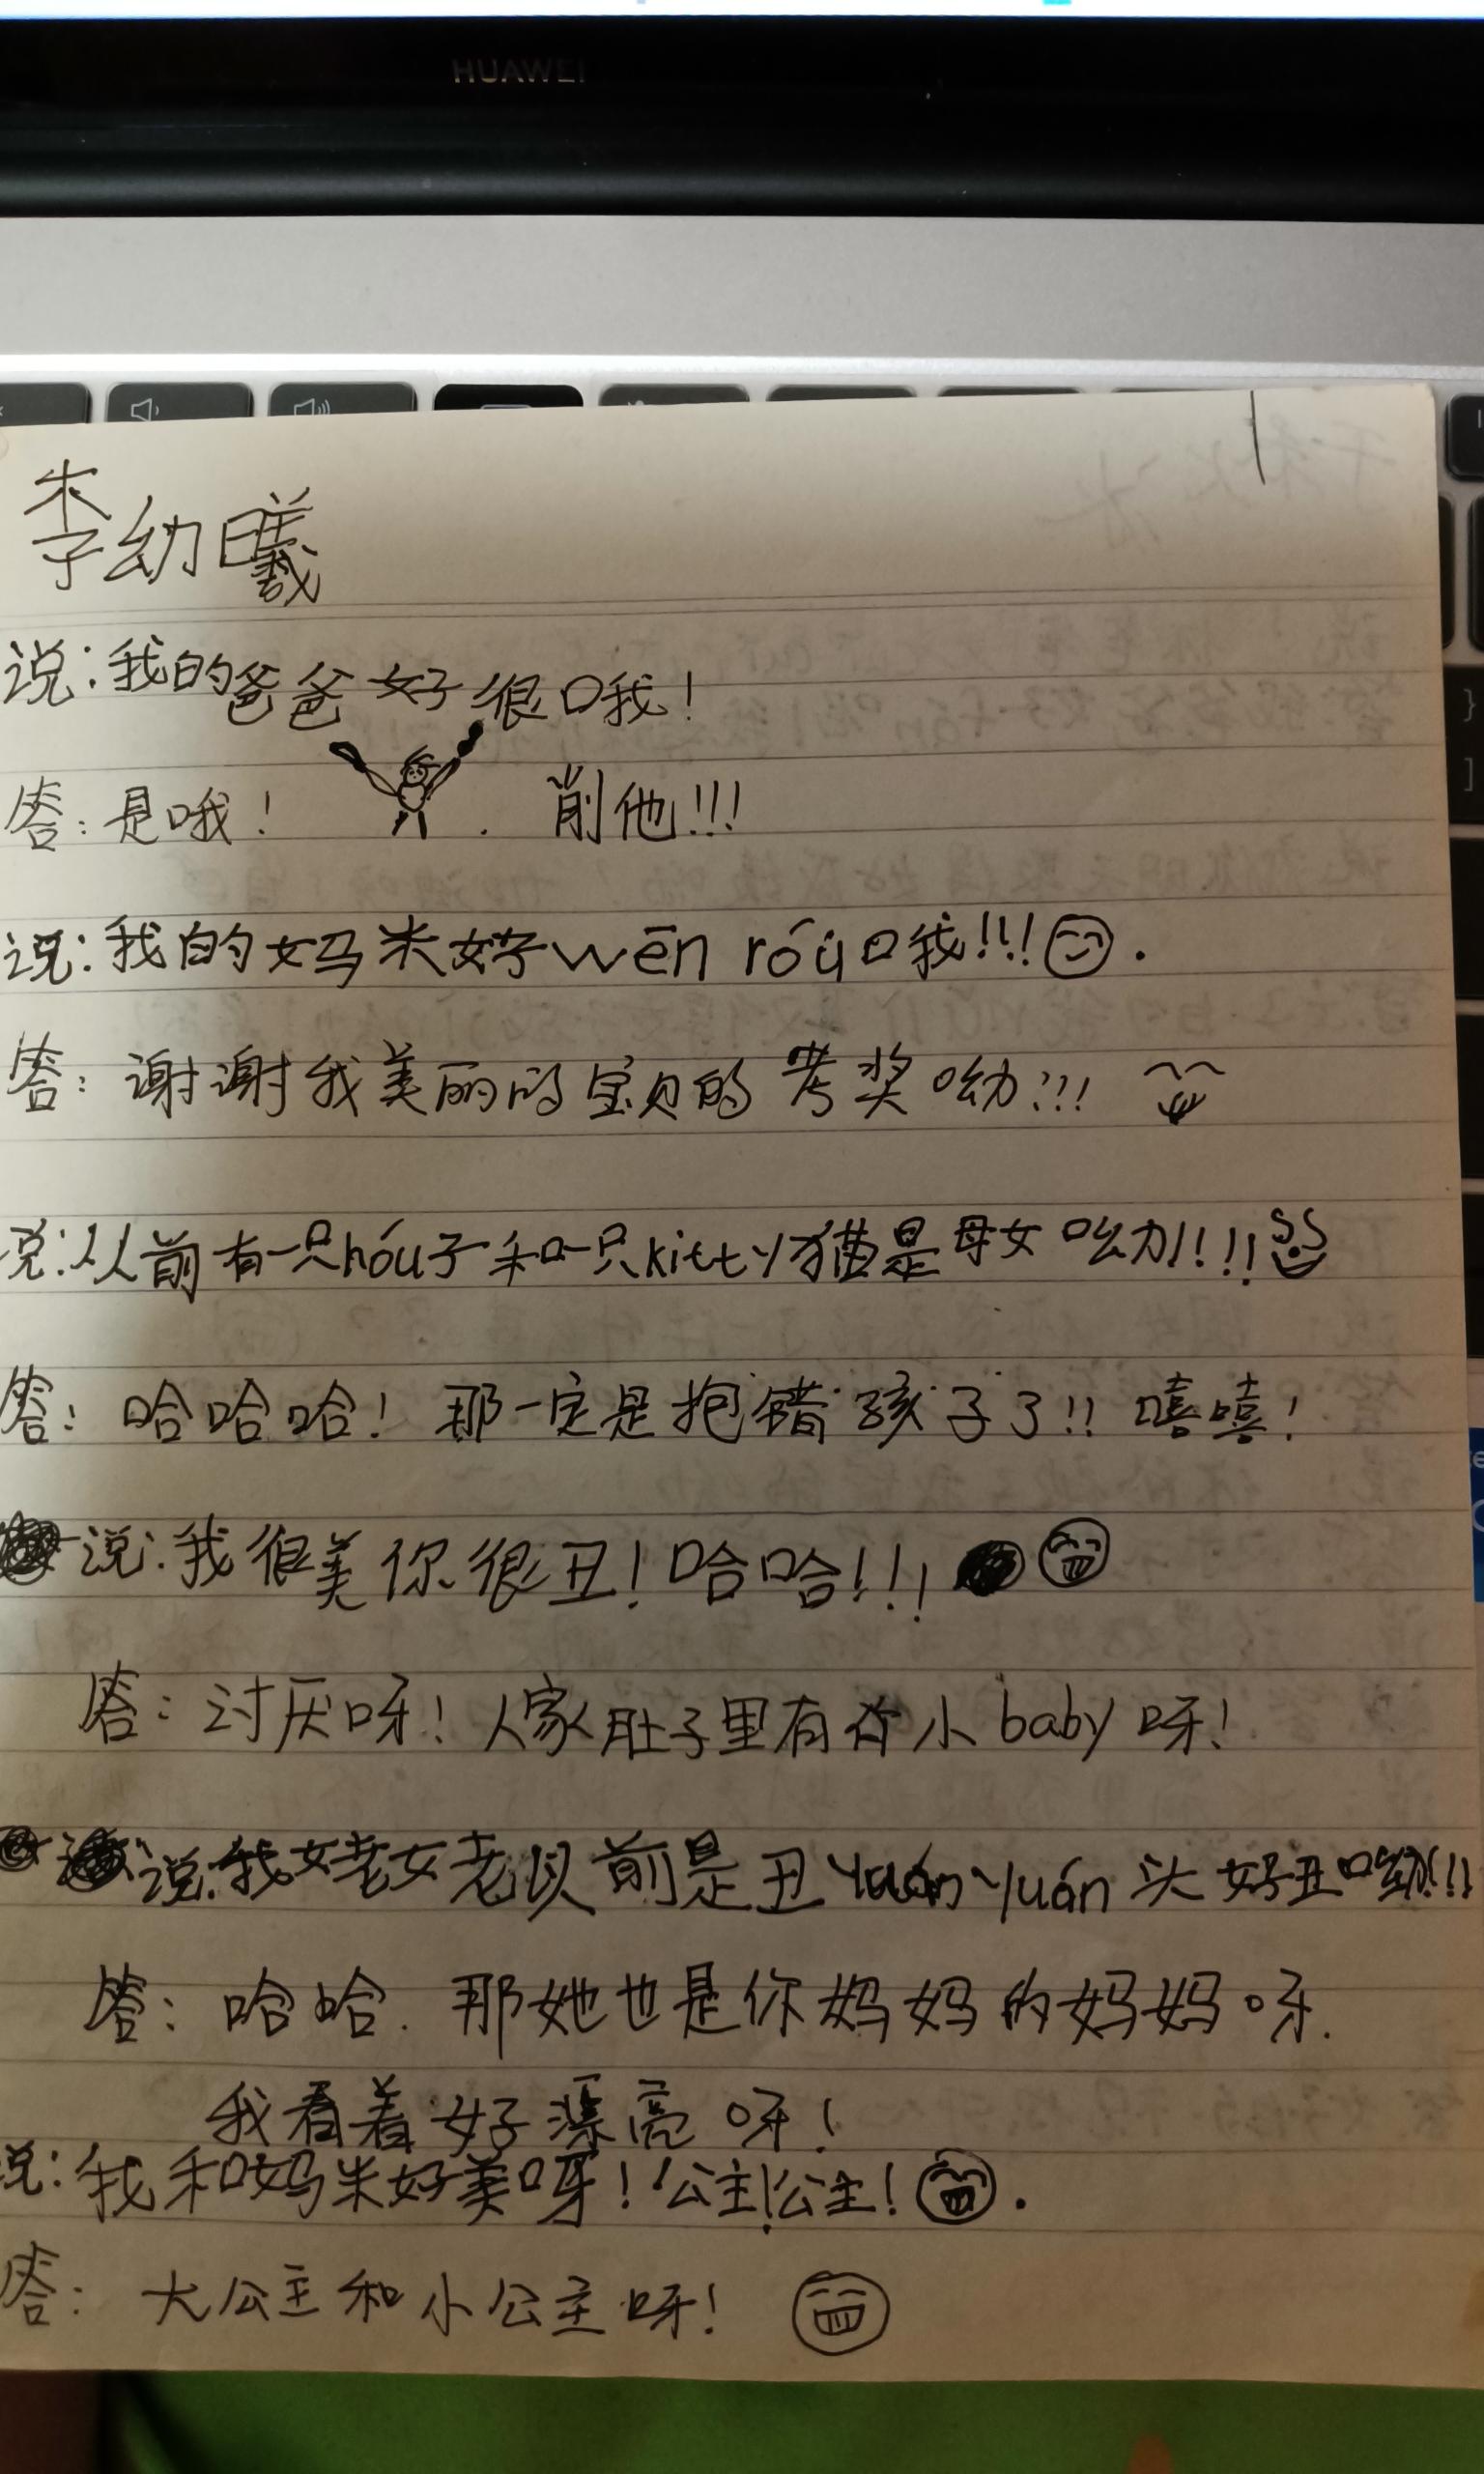 HUAWEI
李幼曦
说:我的爸爸好很哦!
答:是哦! 削他!!!
说:我的妈米好wēn róu哦!!!
答:谢谢我美丽的宝贝的夸奖呦!!!
说:从前有一只hóu子和一只kitty猫是母女呦!!!
答:哈哈哈!那一定是抱错孩子了!!嘻嘻!
说:我很美你很丑!哈哈!!!
答:讨厌呀!人家肚子里有个小baby呀!
说:我姥姥以前是丑yuán yuán头好丑呦!!!
答:哈哈.那她也是你妈妈的妈妈呀.
我看着好漂亮呀!
说:我和妈米好美呀!公主!公主!
答:大公主和小公主呀!